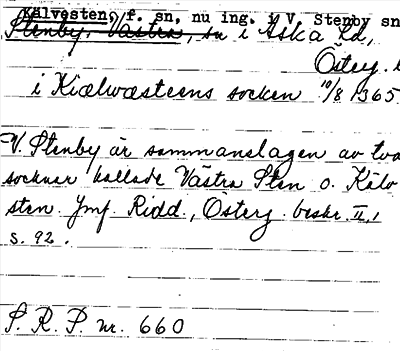 Kälvesten, f. sn, nu ing. i V. Stenby sn
Stenby, Västra, sn i Aska hd,
Österg.
i Kiælwæsteens socken 10/8 1365
V. Stenby är sammanslagen av två
socknar kallade Västra Sten o. Kälv
sten. Jmf. Ridd., Österg. beskr. II,1
s. 92.
S. R. P. nr. 660